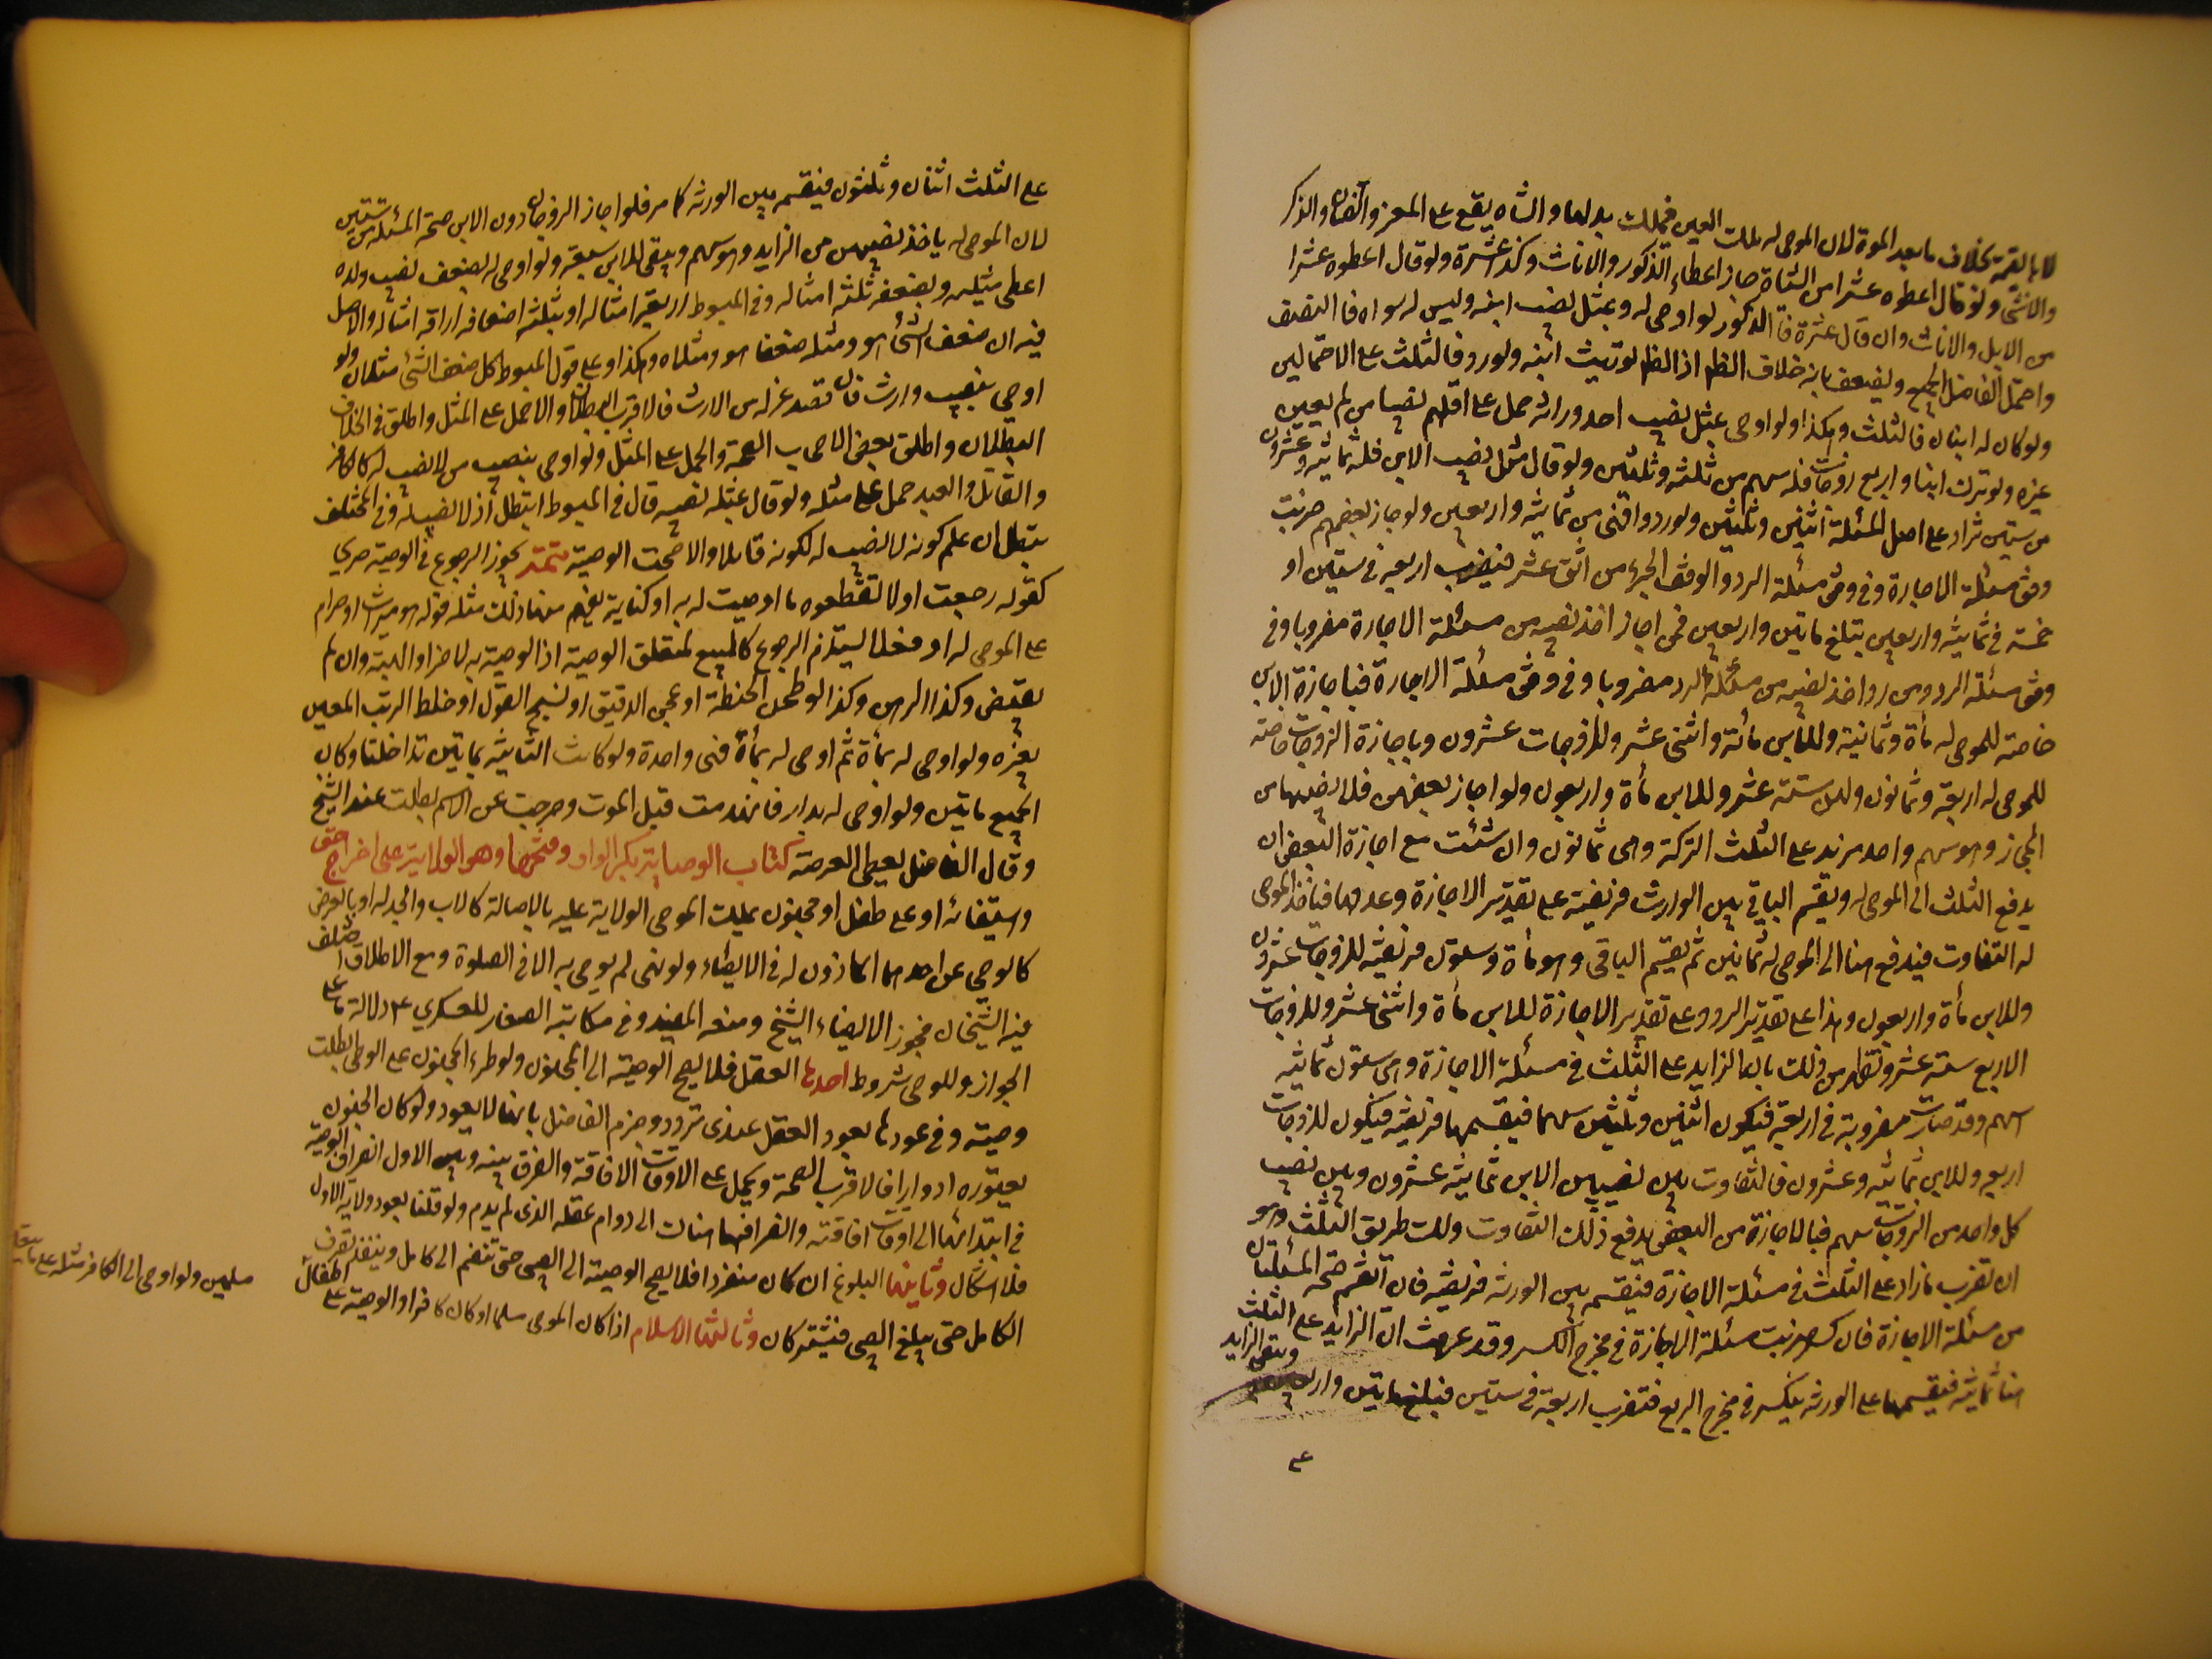 لا بالقيمة بخلاف ما بعد الموة لان الموصى له ملك العين فيملك بدلها والشاه يقع على المعز والضان والذكر
والانثى ولو قال اعطوه عشرا من الشاة جاز اعطاء الذكور والاناث وكذا عشرة ولو قال اعطوه عشرا
من الابل والاناث وان قال عشرة فالذكور لو اوصى له وبمثل نصيب ابنه وليس له سواه فالنصف
واحتمل الفاضل الجميع ويضعف بانه خلاف الظم اذ الظم توريث ابنه ولو رد فالثلث على الاحتمالين
ولو كان له ابنان فالثلث وهكذا ولو اوصى بمثل نصيب احد وراثه حمل على اقلهم نصيبا من لم يعين
غيره ولو ترك ابنا واربع زوجات فله سهم من ثلثة وثلثين ولو قال مثل نصيب الابن فله ثمانيه وعشرون
من ستين تزاد على اصل المسئلة اثنين وثلثين ولو ردوا فهى من ثمانيه واربعين ولو جاز بعضهم ضربت
وفق مسئلة الاجازة فى وفق مسئلة الرد والوفق الجزء من اثنى عشر فيضرب اربعه فى ستين او
خمسة فى ثمانيه واربعين يبلغ ماتين واربعين فمن اجاز اخذ نصيبه من مسئلة الاجازة مضروبا فى
وفق مسئلة الرد ومن رد اخذ نصيبه من مسئلة الرد مضروبا فى وفق مسئلة الاجازة فباجازة الابن
خاصة للموصى له مأة وثمانية وللابن مائة واثنى عشر وللزوجات عشرون وباجازة الزوجات خاصة
للموصى له اربعة وثمانون ولهن ستة عشر وللابن مأة واربعون ولو اجاز بعضهن فله نصيبها من
المجاز وهو سهم واحد مزيد على الثلث التركة وهى ثمانون وان شئت مع اجازة البعض ان
يدفع الثلث الى الموصى له ويقسم الباقى بين الوارث فريضة على تقدير الاجازة وعدمها فياخذ الموصى
له التفاوت فيدفع هنا الى الموصى له ثمانين ثم يقسم الباقى وهو مأة وستون فريضه للزوجات عشرون
وللابن مأة واربعون وهذا على تقدير الرد وعلى تقدير الاجازة للابن مأة واثنى عشر وللزوجات
الاربع ستة عشر وتظهر من ذلك بان الزايد على الثلث فى مسئلة الاجازة وهى ستون ثمانيه
اسهم وقد صارت مضروبة فى اربعة فيكون اثنين وثلثين سهما فيقسمها فريضه فيكون للزوجات
اربع وللابن ثمانيه وعشرون فالتفاوت بين نصيبى الابن ثمانيه عشرون وبين نصيب
كل واحد من الزوجات سهم فبالاجازة من البعض يدفع ذلك التفاوت ولك طريق الثلث وهو
ان تضرب مازاد على الثلث فى مسئلة الاجازة فيقسم بين الورثه فريضه فان انقسم صحة المسئلتان
من مسئلة الاجازة فان كسر ضربت مسئلة الاجازة فى مخرج الكسر وقد عرفت ان الزايد على الثلث
هنا ثمانيه فيقسمها على الورثه ينكسر فى مخرج الربع فتضرب اربعة فى ستين فيبلغ ماتين واربعين ويبقى الزايد
على
على الثلث اثنان وثلثون فيقسم بين الورثه كما مر فلو اجاز الزوجات دون الابن صحة المسئلة من ستين
لان الموصى له ياخذ نصيبهن من الزايد وهو سهم ويبقى للابن سبعة ولو اوصى له بضعف نصيب ولده
اعطى مثليه وبضعفه ثلثه امثاله وفى المبسوط اربعه امثاله او بثلثه اضعافه اربعة امثاله والاصل
فيه ان ضعف الشئ هو ومثله ضعفاه هو ومثلاه وهكذا وعلى قول المبسوط كل ضعف الشئ مثلان ولو
اوصى بنصيب وارث فان قصد عزله من الارث فالاقرب البطلان والا حمل على المثل واطلق فى الخلاف
البطلان واطلق بعض الاصحاب الصحة والحمل على المثل ولو اوصى بنصيب من لا نصيب له كالكافر
والقاتل والعبد حمل على مثله ولو قال بمثله نصيبه قال فى المبسوط ابتطل اذ لا نصيب له وفى المختلف
تبطل ان علم كونه لا نصيب له لكونه قاتلا والا صحت الوصية تتمة يجوز الرجوع فى الوصية صريح
كقوله رجعت اولا تقطعوه ما اوصيت له به او كناية يفهم منها ذلك مثله قوله هو ميراث او حرام
على الموصى له او فعلا يستلزم الرجوع كالمبيع لمتعلق الوصية اذ الوصية به لاخر او الهبة وان لم
يقبض وكذا الرهن وكذا لو طحن الحنطة او عجن الدقيق او نسج الغزل او خلط الزيت المعين
بغيره ولو اوصى له بمأة ثم اوصى له بمأة فهى واحدة ولو كانت الثانيه بماتين تداخلتا وكان
الجميع ماتين ولو اوصى له بدار فانهدمت قبل الموت وخرجت عن الاسم بطلت عند الشيخ
وقال الفاضل يعطى العرصة كتاب الوصاية بكسر الواو وفتحها وهو الولاية على اخراج حق
واستيفائه او على طفل او مجنون يملك الموصى الولاية عليه بالاصالة كالاب والجد له او بالعرض
كالوصى عن احدهما الماذون له فى الايصاء ولو نهى لم يوصى به الا فى الصلوة ومع الاطلاق اختلف
فيه الشيخان فيجوز الايصاء الشيخ ومنعه المفيد وفى مكاتبه الصفار للعسكرى ع دلالة ما على
الجواز وللوصى شروط احدها العقل فلا يصح الوصيه الى المجنون ولو طرء الجنون على الوصى بطلت
وصيته وفى عودها بعود العقل عندى تردد وجزم الفاضل بانها لا يعود ولو كان الجنون
يعتوره ادوارا فالاقرب الصحة ويحمل على الاوقات الافاقة والفرق بينه وبين الاول انصراف الوصية
فى ابتدائها الى اوقات افاقته والصرافها هناك الى دوام عقله الذى لم يدم ولو قلنا بعود ولاية الاول
فلا اشكال وثانيها البلوغ ان كان منفردا فلا يصح الوصيه الى الصبى حتى تنضم الى كامل وينفذ تصرف
الكامل حتى يبلغ الصبى فيشتركان وثالثها الاسلام اذا كان الموصى مسلما او كان كافرا والوصية على اطفال
مسلمين ولو اوصى الى الكافر مثله على ما يتعلق